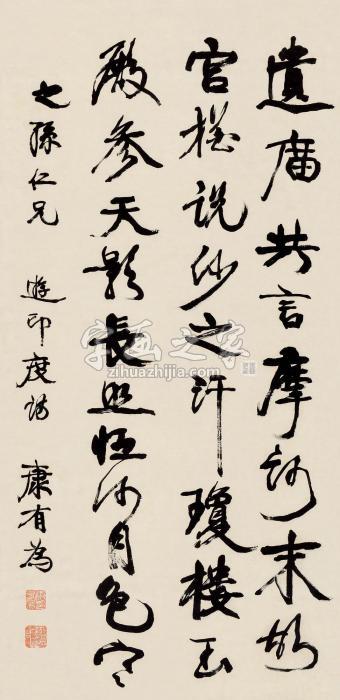 遺廟共言摩訶末故
宮猶說沙之汗瓊樓玉
殿參天影長照恆河月色寒
也孫仁兄 遊印度詩 康有為
字画之家
zihuazhijia.com